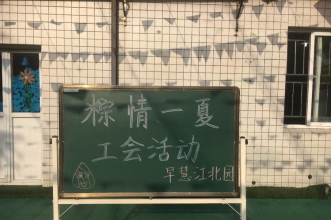 粽情一夏
工会活动
早慧江北园